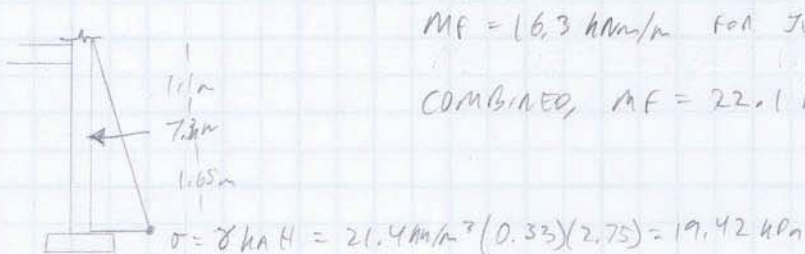 MF = 16.3 kNm/m FOR
COMBINED, MF = 22.1
1.1m
7.3kN
1.65m
σ = γ kA H = 21.4 kN/m³ (0.33)(2.75) = 19.42 kPa